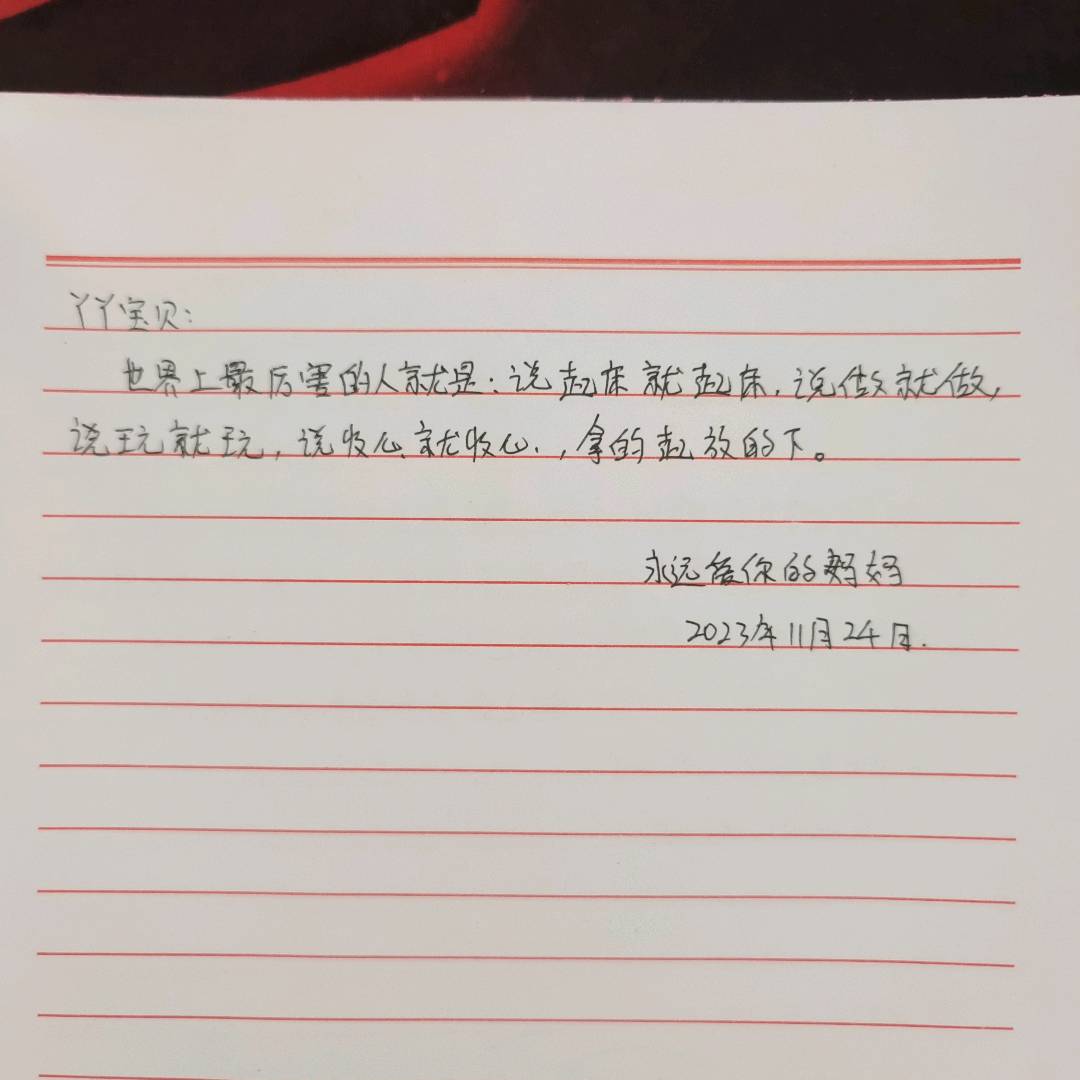 丫丫宝贝:
世界上最厉害的人就是:说起床就起床,说做就做,
说玩就玩,说收心就收心.,拿的起放的下。
永远爱你的妈妈
2023年11月24日.